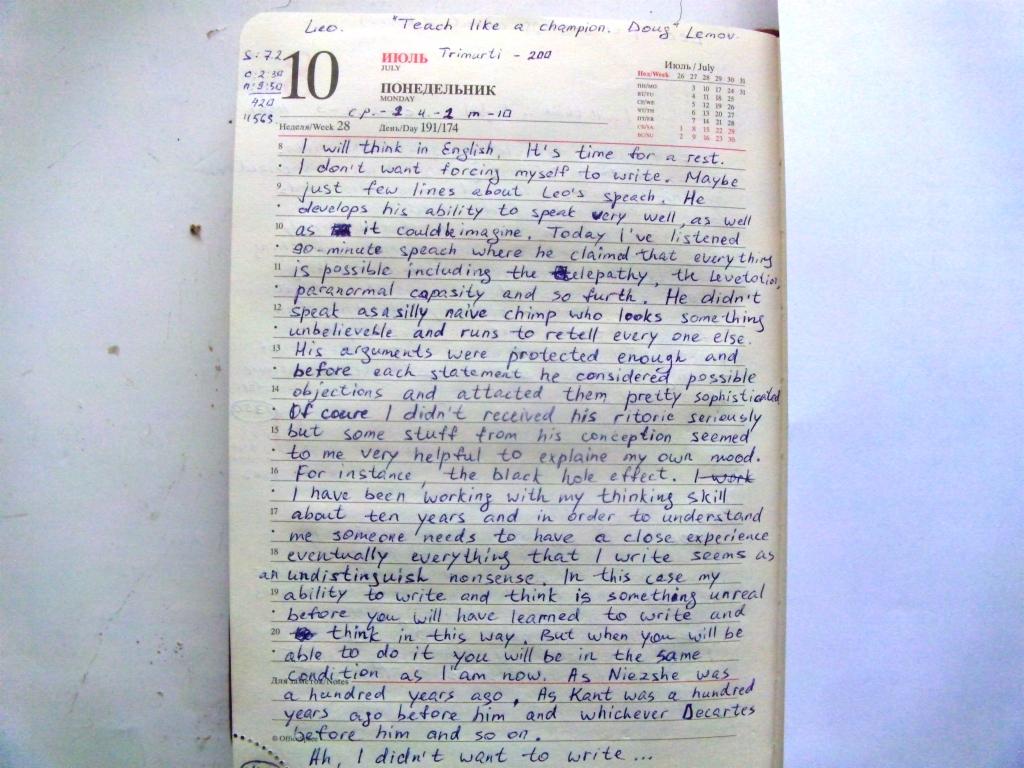 Leo. "Teach like a champion. Doug" Lemov.
S: 7.2
10
ИЮЛЬ Trimurti - 200
JULY
ПОНЕДЕЛЬНИК
MONDAY
Июль / July
Нед/Week 26 27 28 29 30 31
ПН/MO 3 10 17 24 31
ВТ/TU 4 11 18 25
СР/WE 5 12 19 26
ЧТ/TH 6 13 20 27
ПТ/FR 7 14 21 28
СБ/SA 1 8 15 22 29
ВС/SU 2 9 16 23 30
420
4563
Неделя/Week 28 День/Day 191/174
8 I will think in English. It's time for a rest.
I don't want forcing myself to write. Maybe
9 just few lines about Leo's speach. He
develops his ability to speak very well, as well
10 as it could be imagine. Today I've listened
90-minute speach where he claimed that everything
11 is possible including the telepathy, the levetation,
paranormal capasity and so furth. He didn't
12 speak as a silly naive chimp who looks something
unbelieveble and runs to retell every one else.
13 His arguments were protected enough and
before each statement he considered possible
14 objections and attacted them pretty sophisticated
Of coure I didn't received his ritoric seriously
15 but some stuff from his conception seemed
to me very helpful to explaine my own mood.
16 For instance, the black hole effect. I work
I have been working with my thinking skill
17 about ten years and in order to understand
me someone needs to have a close experience
18 eventually everything that I write seems as
an undistinguish nonsense. In this case my
19 ability to write and think is something unreal
before you will have learned to write and
20 think in this way. But when you will be
able to do it you will be in the same
condition as I am now. As Niezshe was
Для заметок/Notes
a hundred years ago, As Kant was a hundred
years ago before him and whichever Decartes
before him and so on.
© Office
Ah, I didn't want to write...